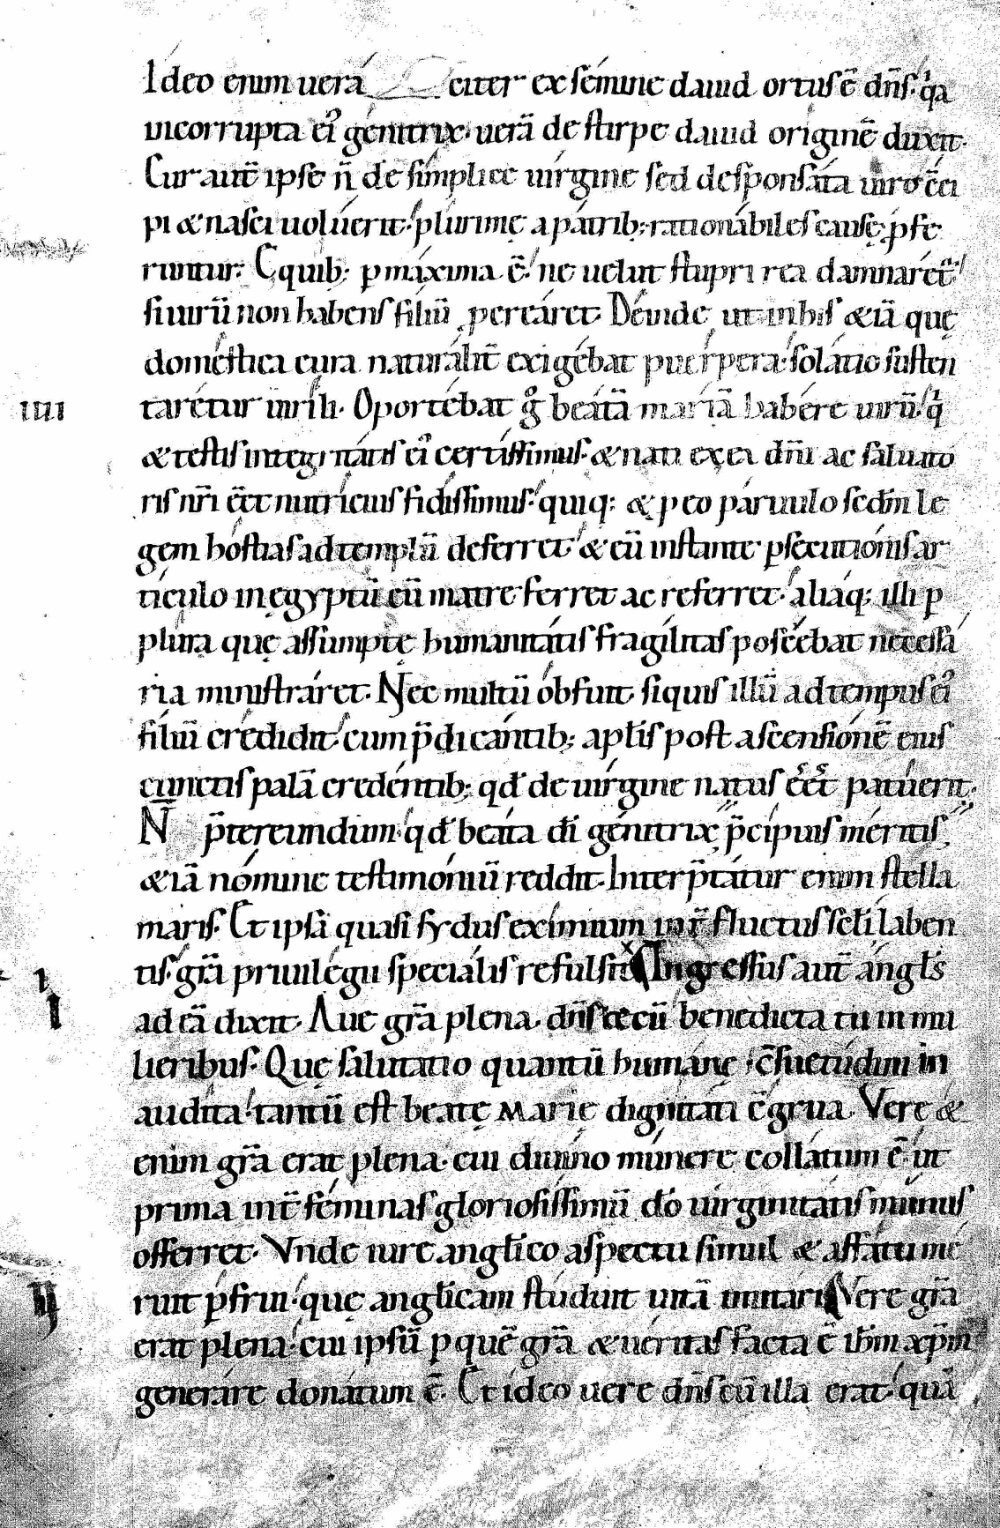 Ideo enim uera citer ex semine dauid ortus ē dn̄s. qͥa
incorrupta ei᷒ genitrix. uerā de stirpe dauid originē duxit.
Cur aut̄ ipse n̄ de simplice uirgine sed desponsata uiro c̄ci
pi & nasci uoluerit. plurimę a patrib; rationabiles causę p̄fe
runtur. E quib; p̱ maxima ē. ne uelut stupri rea damnaret᷑
si uirū non habens filiū pareret. Deinde ut in his &iā quę
domestica cura naturalit̄ exigebat puerpera. solatio susten
IIII taretur uirili. Oportebat gͦ beatā mariā habere uirū. qͥ
& testis integritatis ei᷒ certissimus. & nati ex ea dn̄i ac saluato
ris nr̄i eēt nutricius fidissimus. quiq; & p̱ eo paruulo sedm̄ le
gem hostias ad templū deferret. & eū instante p̱secutionis ar
ticulo in egyptū cū matre ferret ac referret. aliaq; illi p̱
plura quę assumptę humanitatis fragilitas poscebat necessa
ria ministraret. Nec multū obfuit. siquis illū ad tempus ei᷒
filiū credidit. cum p̄dicantib; apl̄is post ascensionē eius
cunctis palā credentib; qd̄ de uirgine natus eēt patuerit.
N̄ p̄tereundum. qd̄ beata dī genitrix p̄cipuis meritis
&iā nomine testimoniū reddit. Interp̄tatur enim stella
maris. Et ipsa quasi sydus eximium int̄ fluctus scl̄i laben
I tis. gr̄a priuilegii specialis refulsit. Ingressus aut̄ angl̄s
I ad eā dixit. Aue gr̄a plena. dn̄s tecū benedicta tu in mu
lieribus. Quę salutatio quantū humanę c̄suetudini in
audita. tantū est beatę Marię dignitati c̄grua. Vere &
enim gr̄a erat plena. cui diuino munere collatum ē. ut
prima int̄ feminas gloriosissimū dō uirginitatis munus
offerret. Vnde iure angl̄ico aspectu simul & affatu me
II ruit p̱frui. quę angl̄icam studuit uitā imitari. Vere gr̄a
erat plena. cui ipsū p̱ quē gr̄a & ueritas facta ē ih̄m xp̄m
generare donatum ē. Et ideo uere dn̄s cū illa erat. quā